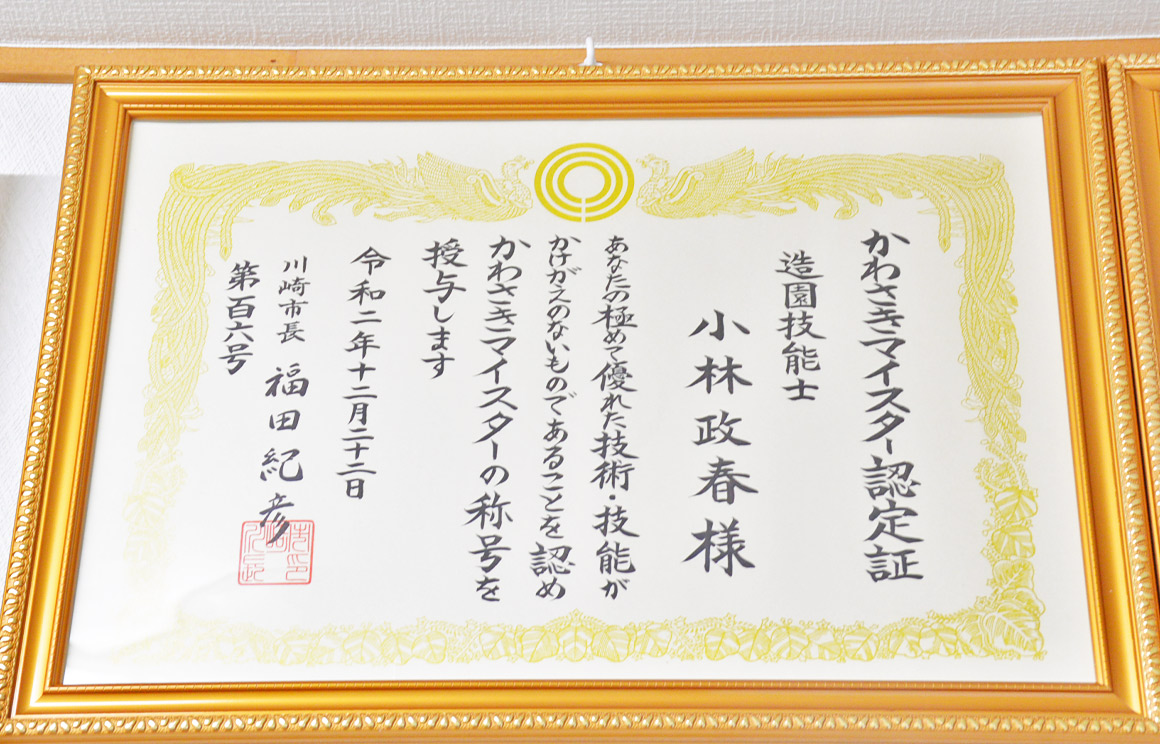 かわさきマイスター認定証
造園技能士
小林政春様
あなたの極めて優れた技術・技能が
かけがえのないものであることを認め
かわさきマイスターの称号を
授与します
令和二年十二月二十二日
川崎市長 福田紀彦
第百六号